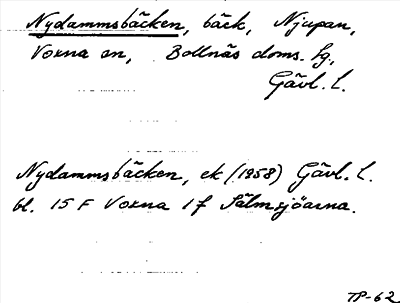 Nydammsbäcken, bäck, Njupan,
Voxna sn, Bollnäs doms. sg,
Gävl. l.
Nydammsbäcken, ek (1958) Gävl. l.
bl. 15 F Voxna 1 f Sälmsjöarna.
TP-62